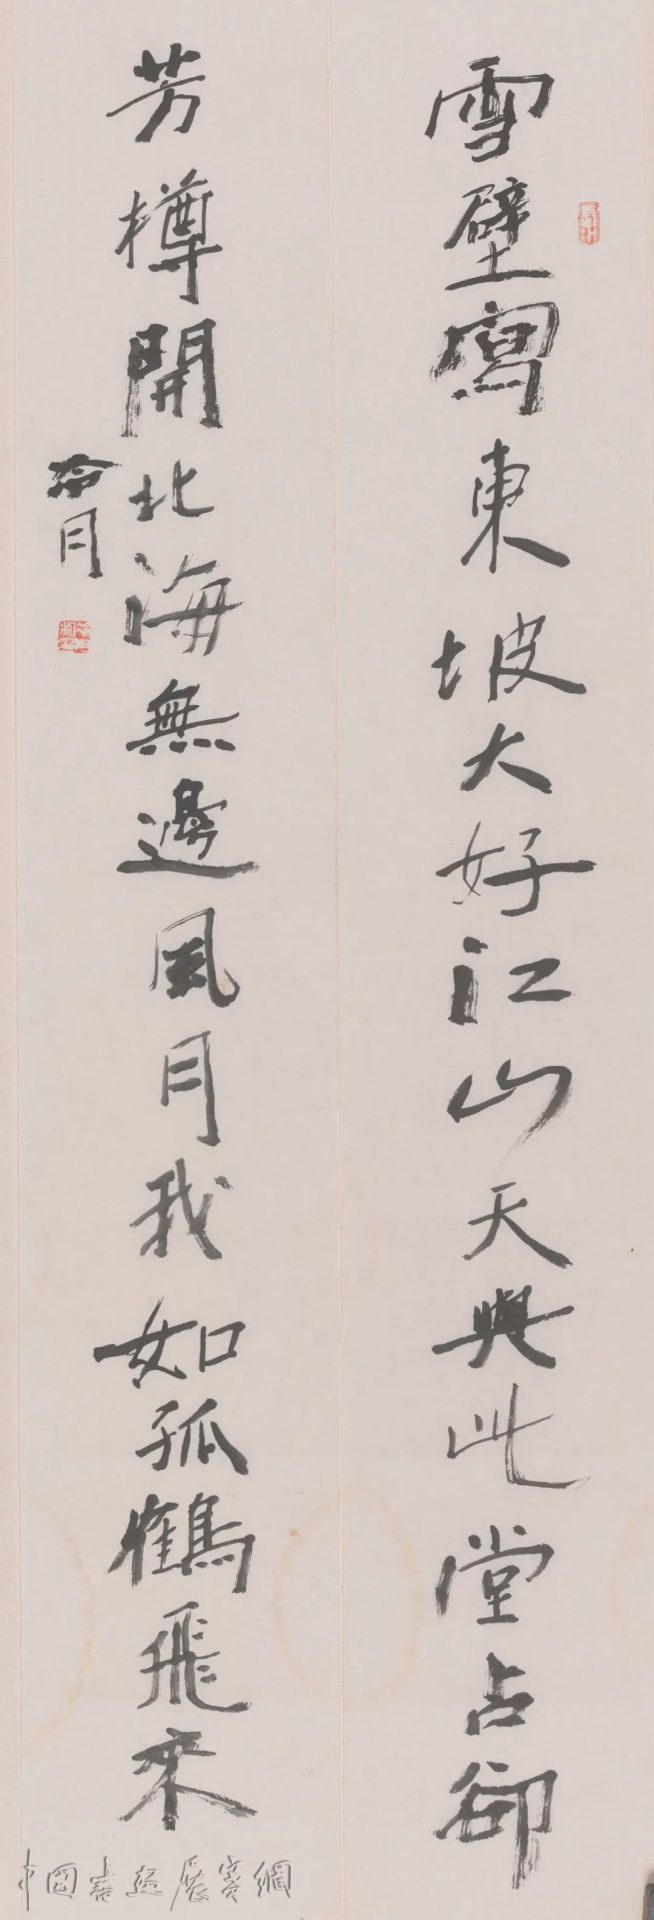 雪壁寫東坡大好江山天與此堂占卻
芳樽開北海無邊風月我如孤鶴飛來
冷月
中國書畫展賽網